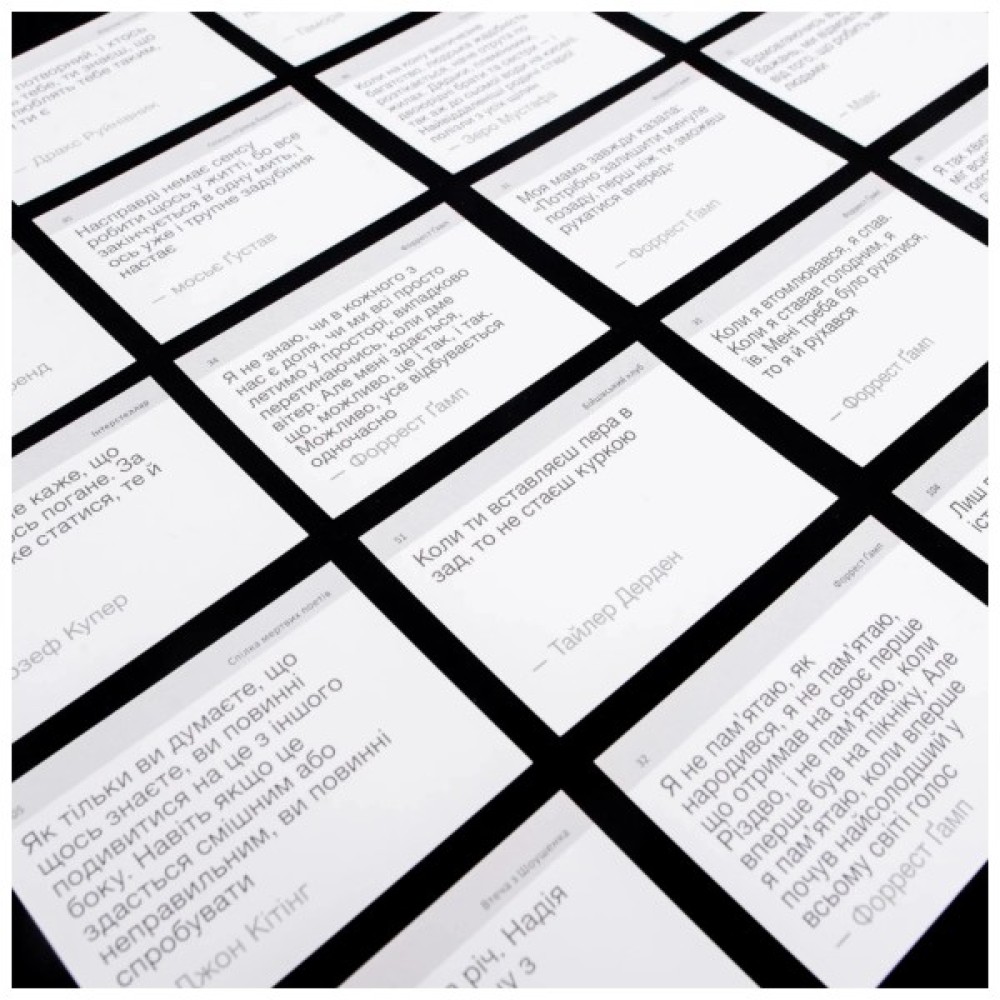 потворний, і хтось
тебе, ти знаєш, що
люблять тебе таким,
ти є
— Дракс Руйнівник
Коли на кону величезне
багатство, людська жадібність
розтікається, наче отрута по
жилах. Дядьки, племінники,
двоюрідні брати та сестри — і
так аж до сьомої води на киселі.
Найвіддаленіші родичі старої
повзли з усіх щілин
— Зеро Мустафа
від того, що робить нас
людьми
— Макс
45
Насправді немає сенсу
робити щось у житті, бо все
закінчується в одну мить, і
ось уже і трупне задубіння
настає
— мосьє Ґустав
Форрест Ґамп
Моя мама завжди казала:
«Потрібно залишити минуле
позаду, перш ніж ти зможеш
рухатися вперед»
— Форрест Ґамп
Форрест Ґамп
34
Я не знаю, чи в кожного з
нас є доля, чи ми всі просто
летимо у просторі, випадково
перетинаючись, коли дме
вітер. Але мені здається,
що, можливо, це і так, і так.
Можливо, усе відбувається
одночасно
— Форрест Ґамп
Форрест Ґамп
35
Коли я втомлювався, я спав.
Коли я ставав голодним, я
їв. Мені треба було рухатися,
то я й рухався
— Форрест Ґамп
Я так
Інтерстеллар
не каже, що
ось погане. За
же статися, те й
Купер
Бійцівський клуб
51
Коли ти вставляєш пера в
зад, то не стаєш куркою
— Тайлер Дерден
104
Лиш
Спілка мертвих поетів
Як тільки ви думаєте, що
щось знаєте, ви повинні
подивитися на це з іншого
боку. Навіть якщо це
здасться смішним або
неправильним, ви повинні
спробувати
Джон Кітінг
Форрест Ґамп
32
Я не пам'ятаю, як
народився, я не пам'ятаю,
що отримав на своє перше
Різдво, і не пам'ятаю, коли
вперше був на пікніку. Але
я пам'ятаю, коли вперше
почув найсолодший у
всьому світі голос
— Форрест Ґамп
Втеча з Шоушенка
річ. Надія
у з